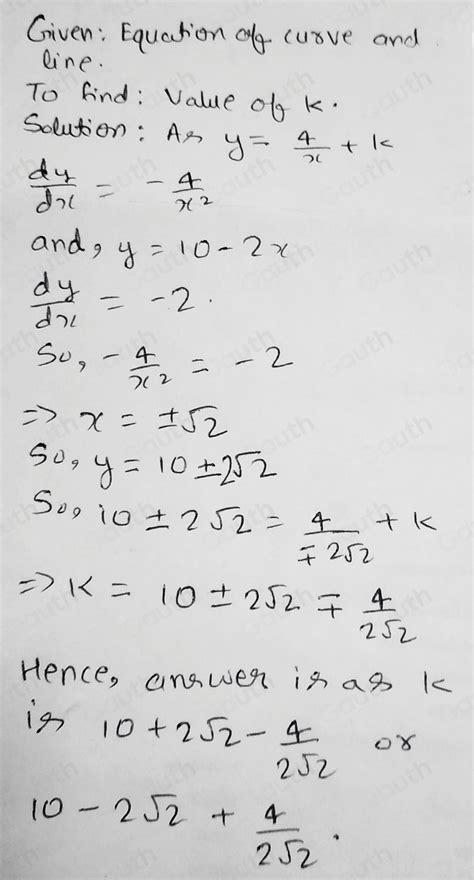 Given: Equation of curve and
line.
To find: Value of k.
Solution: As y = 4/x + k
dy/dx = - 4/x²
and, y = 10 - 2x
dy/dx = -2.
So, - 4/x² = -2
=> x = ±√2
So, y = 10 ± 2√2
So, 10 ± 2√2 = 4/∓2√2 + k
=> k = 10 ± 2√2 ∓ 4/2√2
Hence, answer is as k
is 10 + 2√2 - 4/2√2 or
10 - 2√2 + 4/2√2.